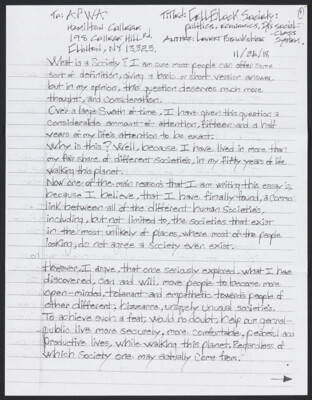 To: A.P.W.A.
Hamilton College
198 College Hill Rd.
Clinton, NY 13323.
Title: Cell Block Society:
Politics, Economics, It's Social-
Class
System.
Author:
11/26/18
What is a Society? I am sure most people can offer some
sort of definition, giving a basic or short version answer
but in my opinion, this question deserves much more
thought, and consideration.
Over a large swath of time, I have given this question a
considerable amount of attention, fifteen and a half
years of my life's attention to be exact.
Why is this? Well, because I have lived in more than
my fair share of different societies, in my fifty years of life
walking this planet.
Now one of the main reasons that I am writing this essay is
because I believe, that I have finally found, a common
link between all of the different human societies,
including, but not limited to, the societies that exist
in the most unlikely of places, where most of the people
looking, do not agree a society even exist.
However, I argue, that once seriously explored, what I have
discovered, can and will, move people to become more
open-minded, tolerant and empathetic towards people of
other different, bizzare, uniquely unusual societies.
To achieve such a feat, would no doubt, help our general-
public live more securely, more comfortable, peaceful and
productive lives, while walking this planet. Regardless of
which Society one may actually come from.